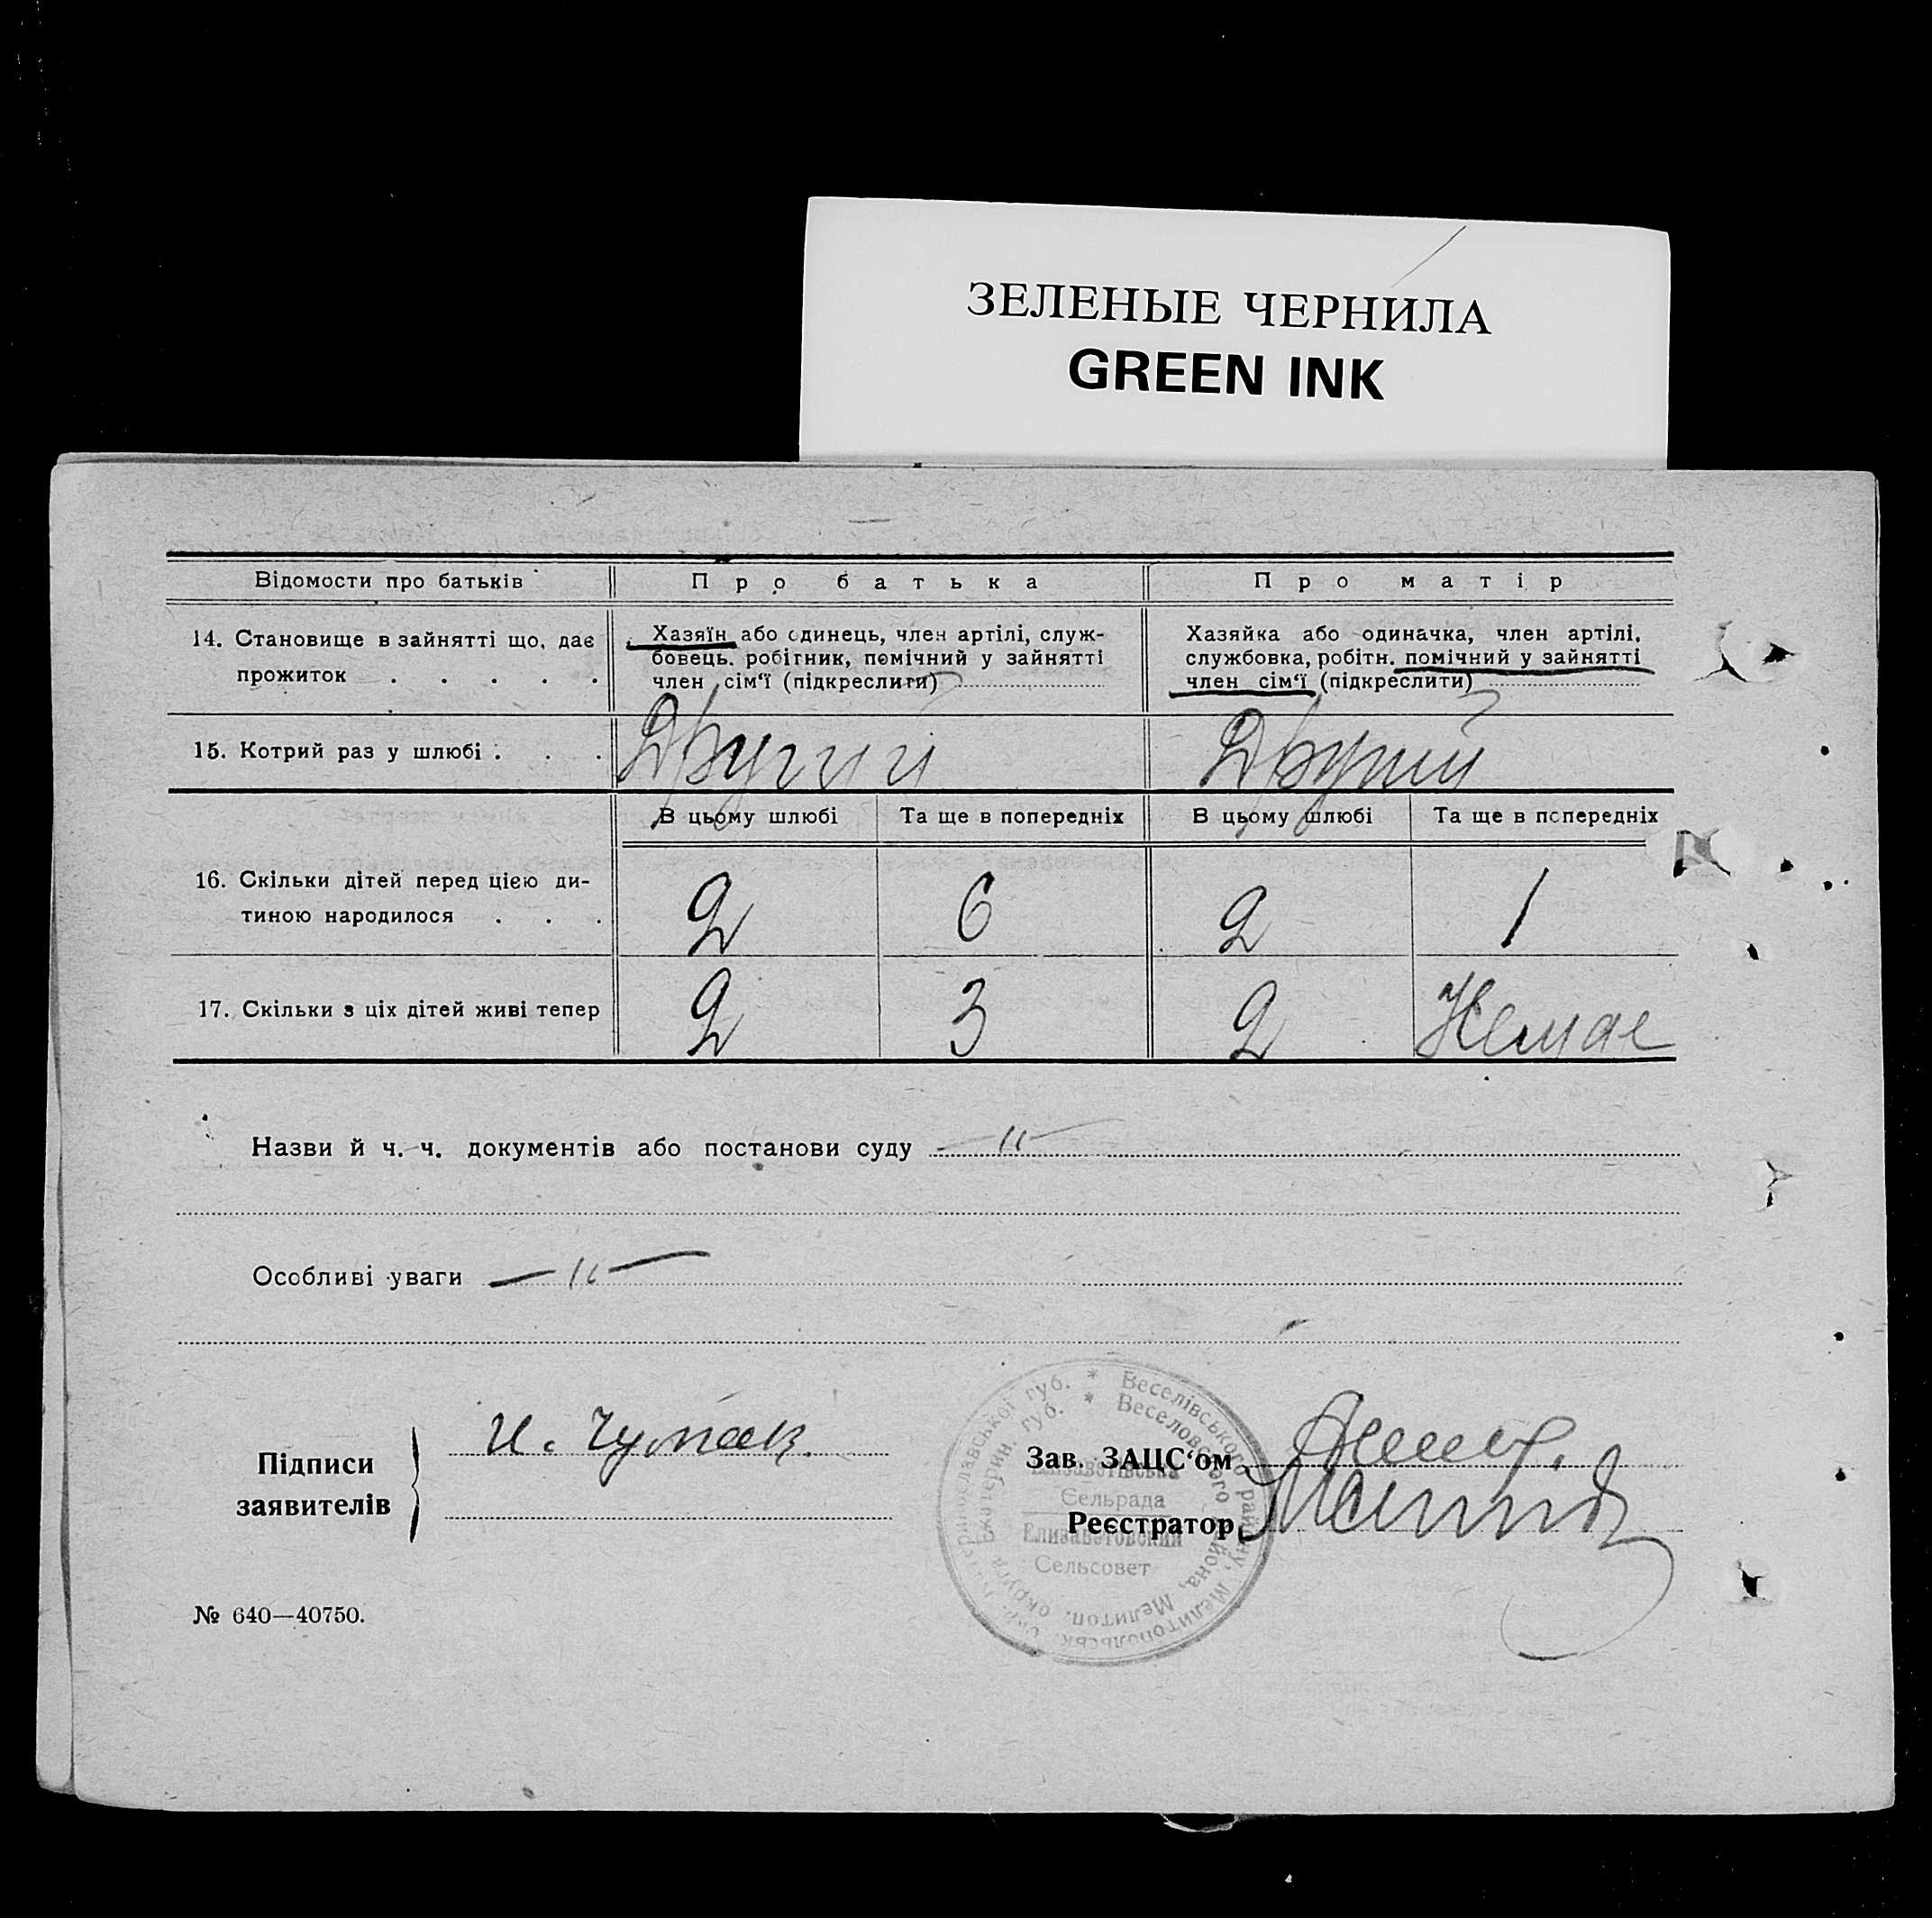 ЗЕЛЕНЫЕ ЧЕРНИЛА
GREEN INK
Відомости про батьків
Про батька
Про матір
14. Становище в зайнятті що, дає
прожиток . . . . .
Хазяїн або одинець, член артілі, служ-
бовець, робітник, помічний у зайнятті
член сім‘ї (підкреслити)
Хазяйка або одиначка, член артілі,
службовка, робітн. помічний у зайнятті
член сім‘ї (підкреслити)
15. Котрий раз у шлюбі . . .
Другий
Другий
В цьому шлюбі
Та ще в попередніх
В цьому шлюбі
Та ще в попередніх
16. Скільки дітей перед цією ди-
тиною народилося . . .
2
6
2
1
17. Скільки з ціх дітей живі тепер
2
3
2
Немає
Назви й ч. ч. документів або постанови суду —〃 —
Особливі уваги — 〃 —
Підписи
заявителів
И. Чумак.
Зав. ЗАЦС‘ом
Реєстратор
* Веселівського району, Мелитопольськ. окр. Катеринославської губ.
* Веселовского района, Мелитоп. округа Екатерин. губ.
Єлизаветівська
Сельрада
Елизаветовский
Сельсовет
№ 640—40750.